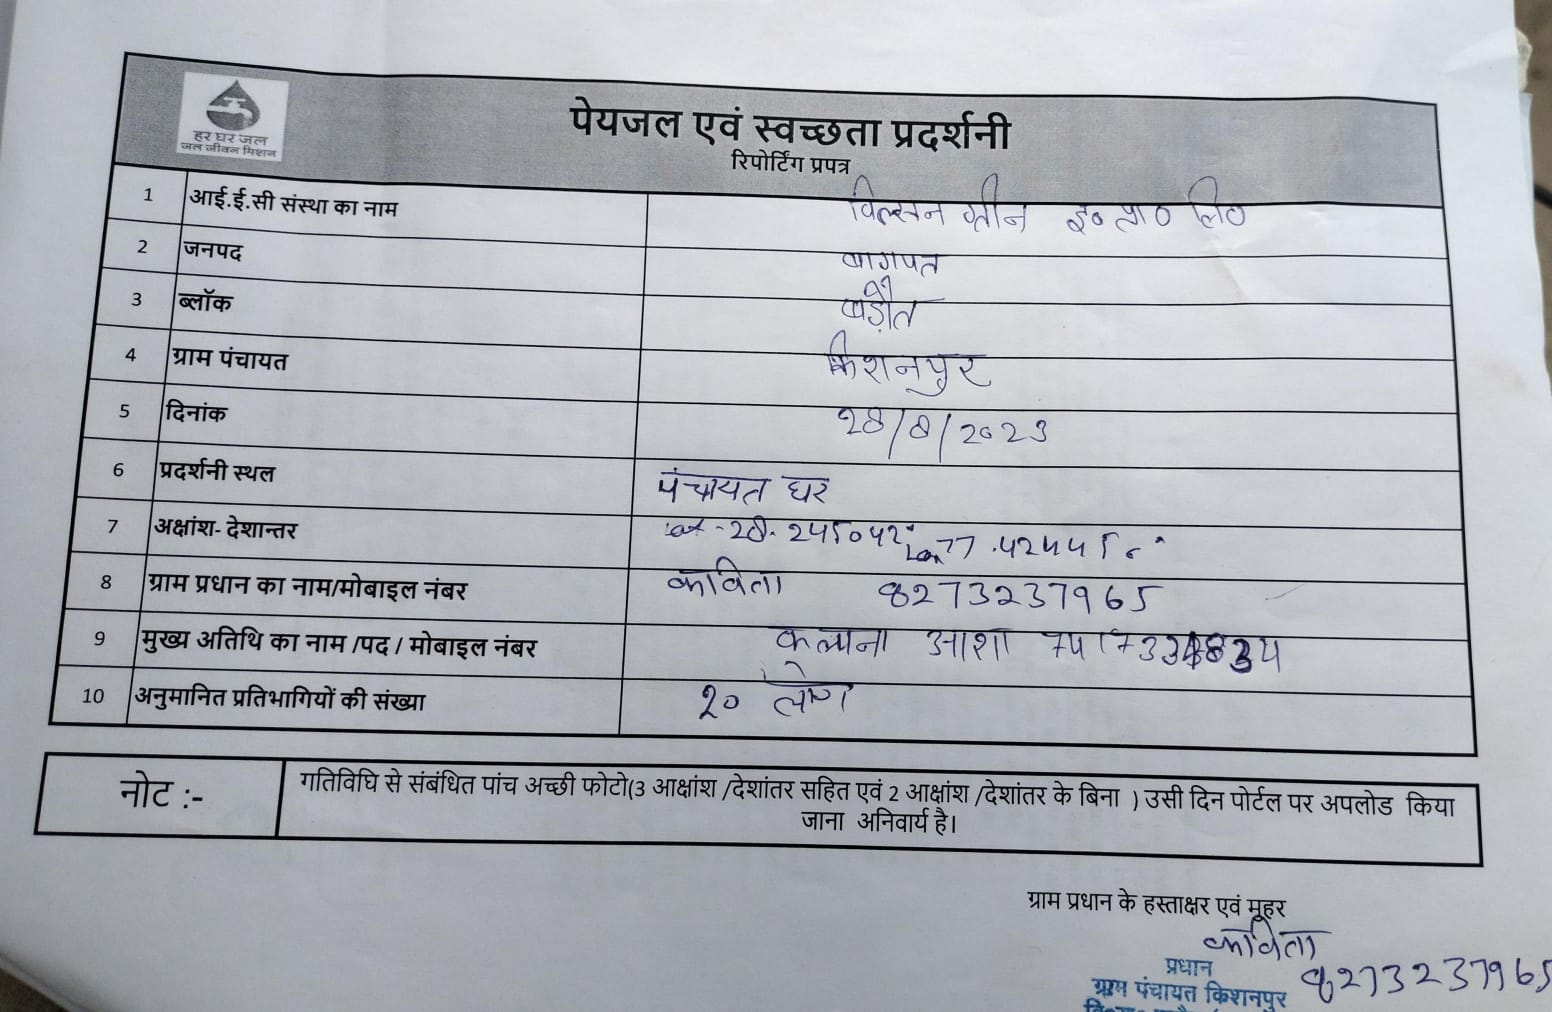 हर घर जल
जल जीवन मिशन
पेयजल एवं स्वच्छता प्रदर्शनी
रिपोर्टिंग प्रपत्र
1 आई.ई.सी संस्था का नाम विल्सन ग्रीन इ० प्रा० लि०
2 जनपद बागपत
3 ब्लॉक बड़ौत
4 ग्राम पंचायत किशनपुर
5 दिनांक 28/8/2023
6 प्रदर्शनी स्थल पंचायत घर
7 अक्षांश- देशान्तर
8 ग्राम प्रधान का नाम/मोबाइल नंबर कविता 8273237965
9 मुख्य अतिथि का नाम /पद / मोबाइल नंबर कल्पना आशा
10 अनुमानित प्रतिभागियों की संख्या 20 लोग
नोट :- गतिविधि से संबंधित पांच अच्छी फोटो(3 आक्षांश /देशांतर सहित एवं 2 आक्षांश /देशांतर के बिना ) उसी दिन पोर्टल पर अपलोड किया
जाना अनिवार्य है।
ग्राम प्रधान के हस्ताक्षर एवं मूहर
कविता
प्रधान 8273237965
ग्राम पंचायत किशनपुर